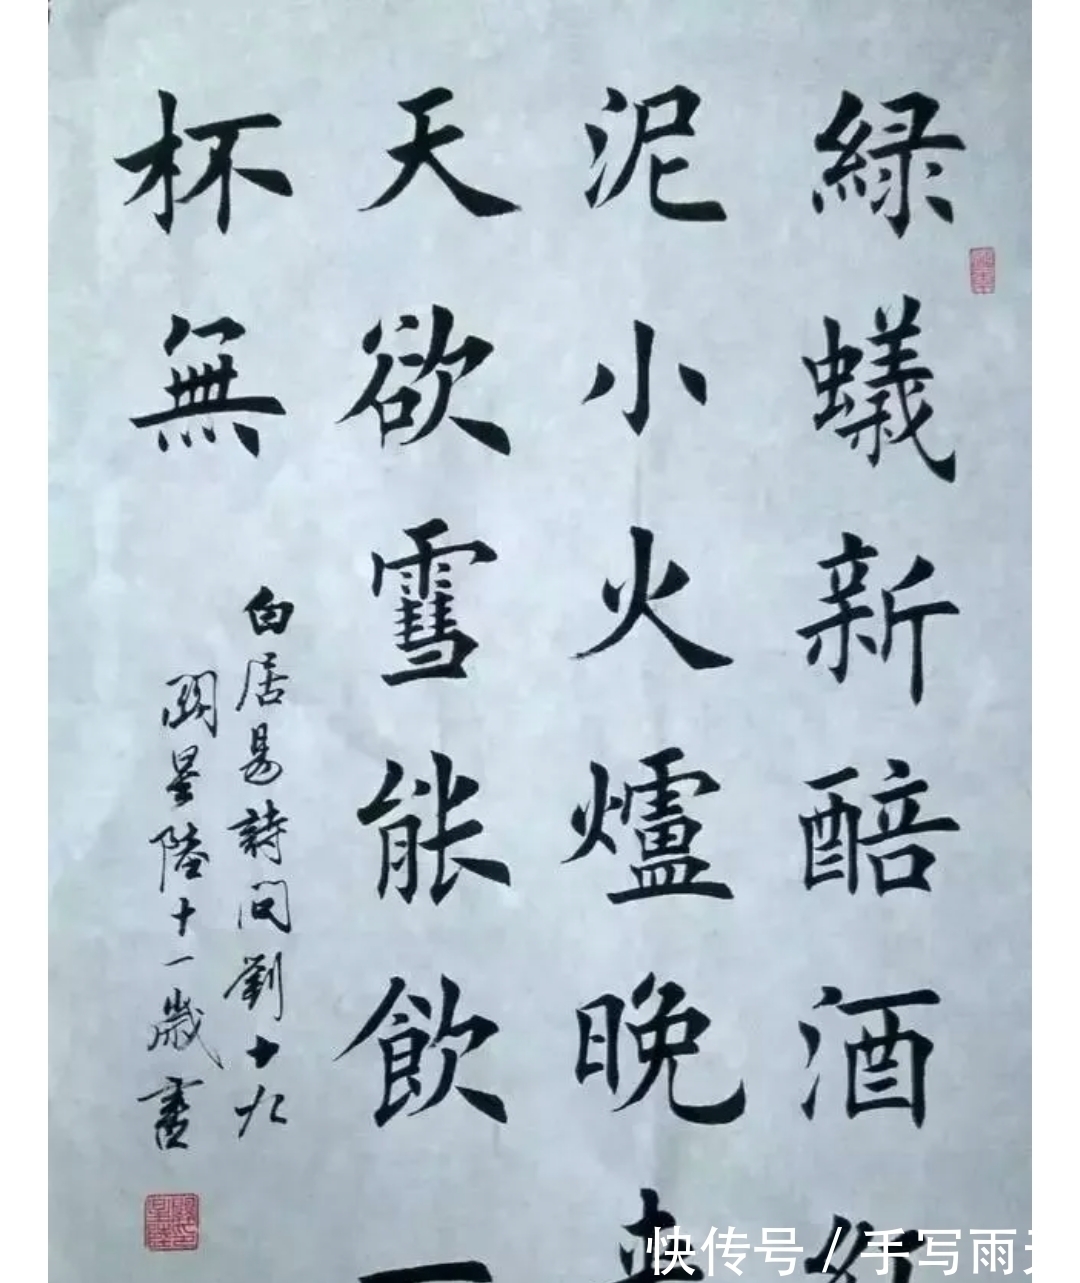 綠蟻新醅酒紅
泥小火爐晚來
天欲雪能飲一
杯無
白居易詩問劉十九
關星陸十一歲書
快传号 / 手写雨天